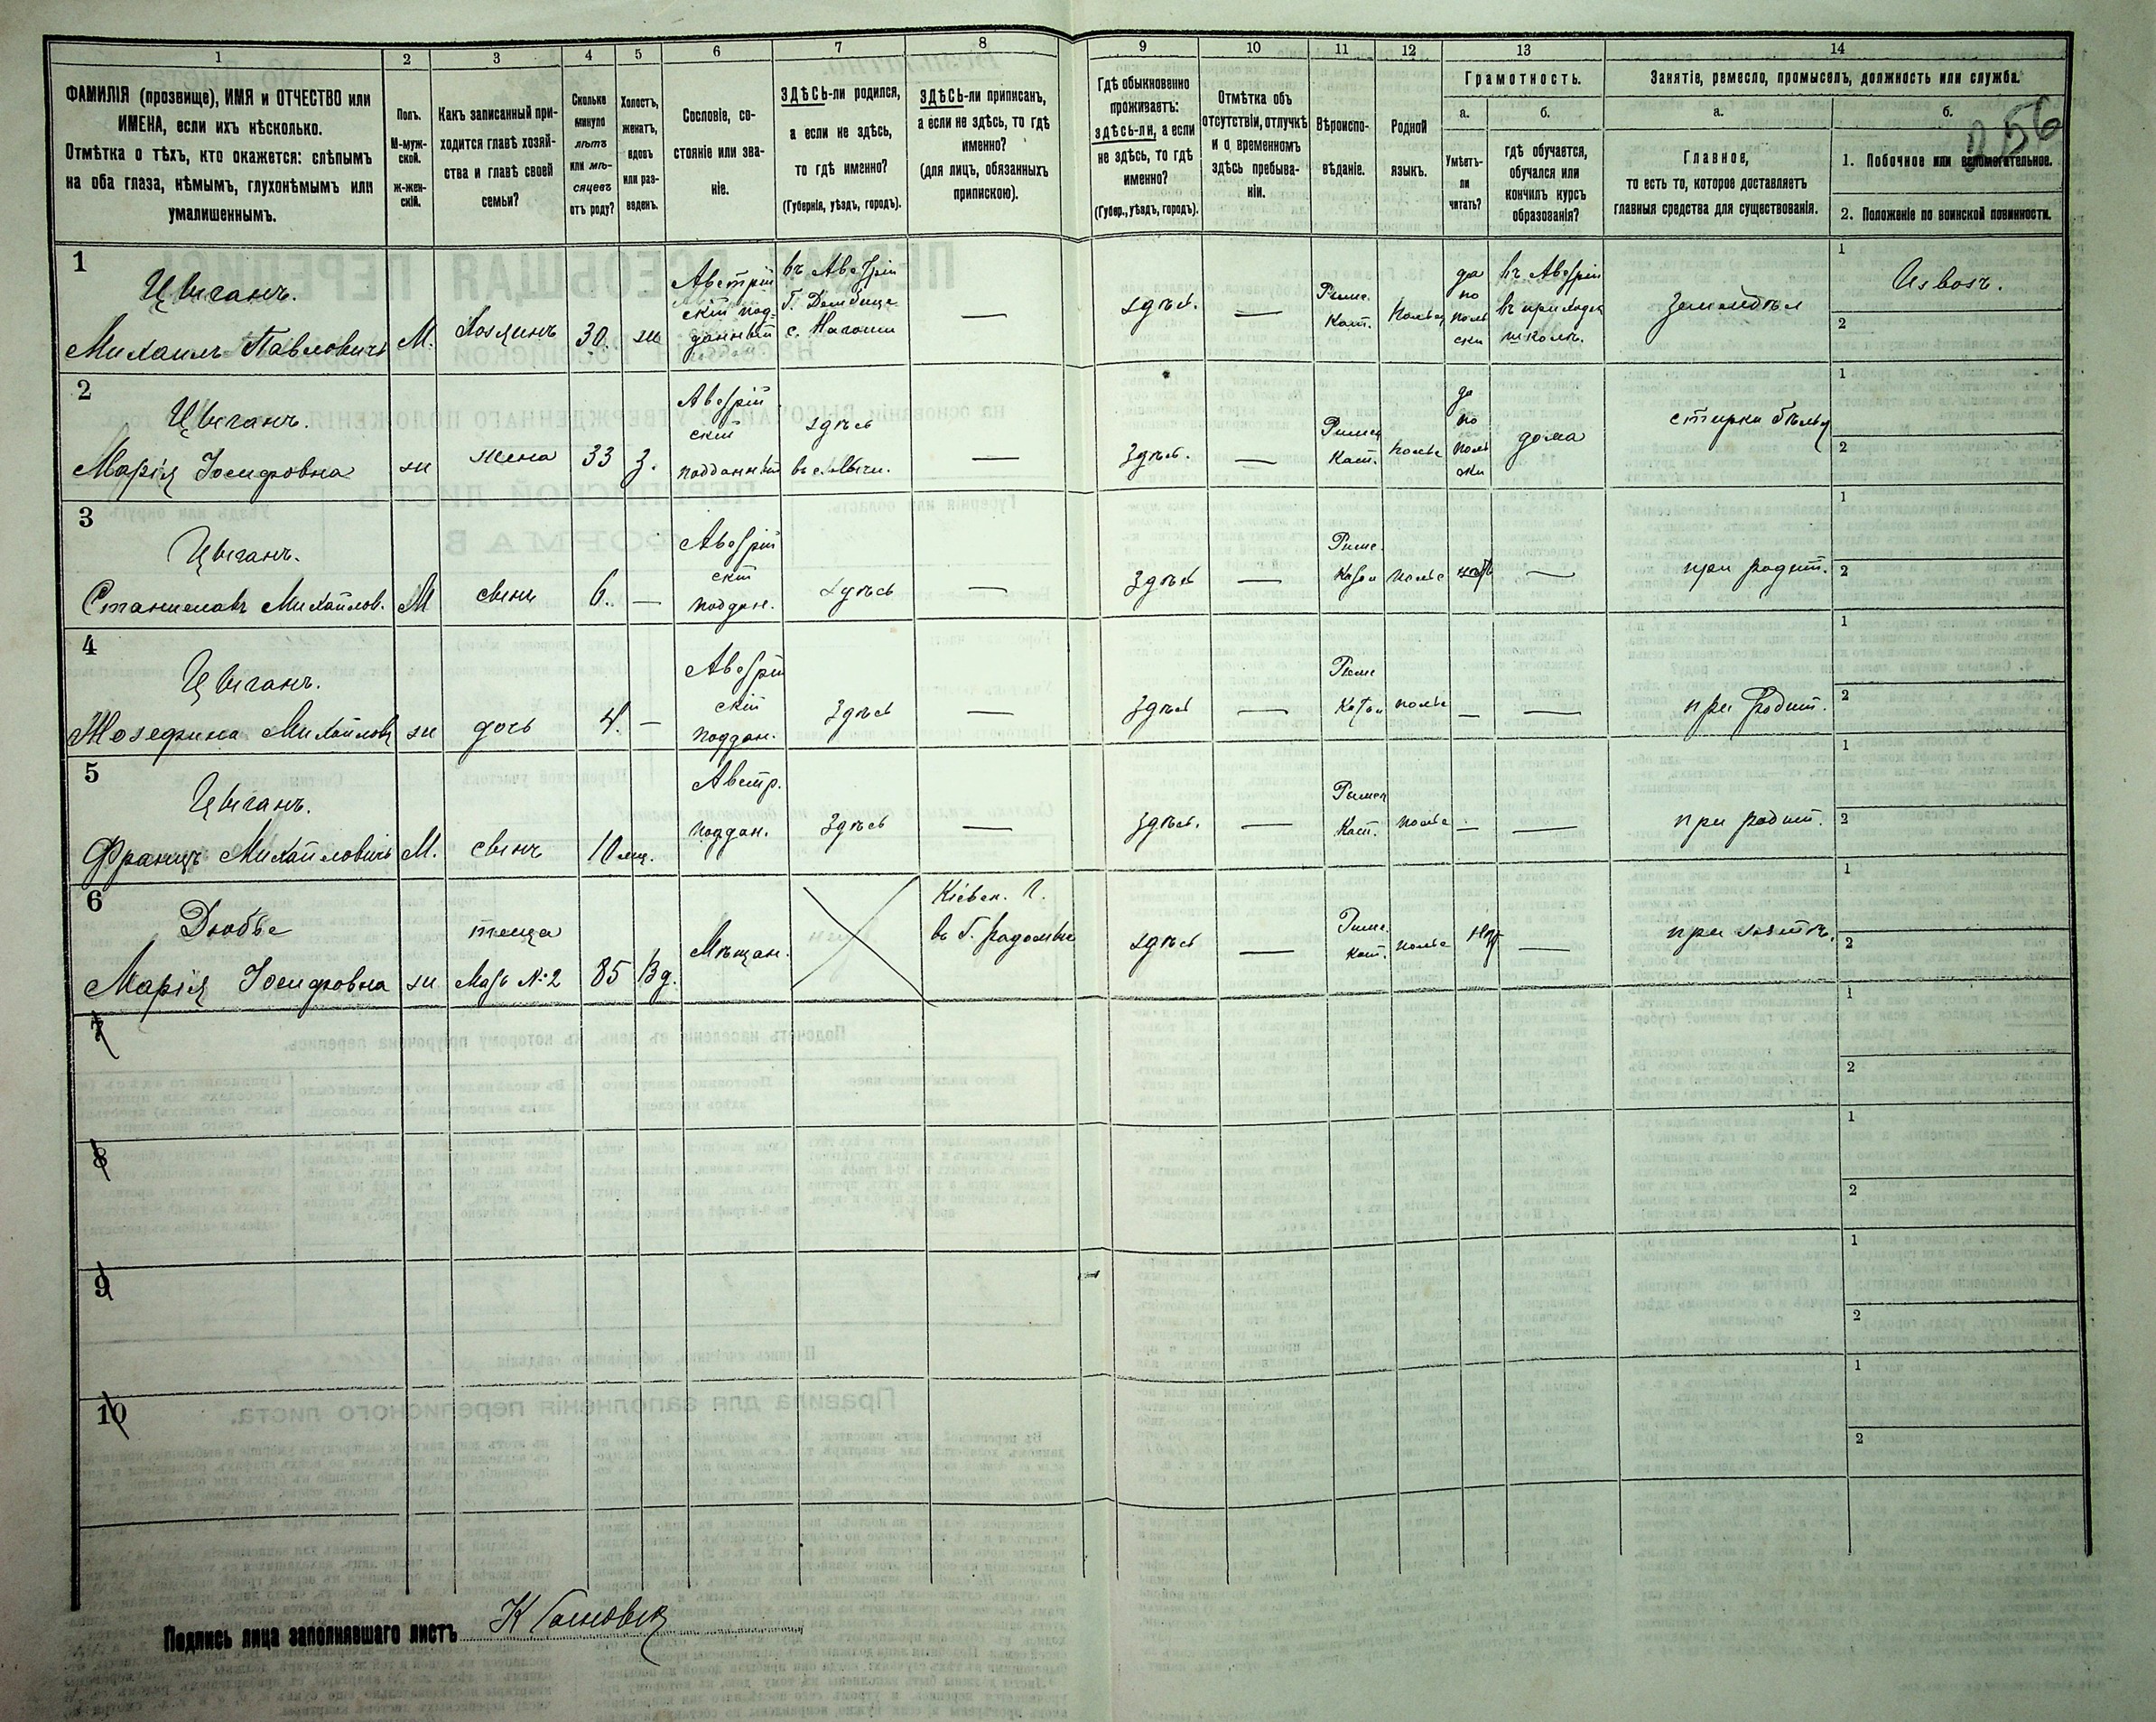 1 2 3 4 5 6 7 8 9 10 11 12 13 14
ФАМИЛІЯ (прозвище), ИМЯ и ОТЧЕСТВО или
ИМЕНА, если ихъ нѣсколько.
Отмѣтка о тѣхъ, кто окажется: слѣпымъ
на оба глаза, нѣмымъ, глухонѣмымъ или
умалишеннымъ.
Полъ.
М-муж-
ской.
ж-жен-
скій.
Какъ записанный при-
ходится главѣ хозяй-
ства и главѣ своей
семьи?
Сколько
минуло
лѣтъ
или мѣ-
сяцевъ
отъ роду?
Холостъ,
женатъ,
вдовъ
или раз-
веденъ.
Сословіе, со-
стояніе или зва-
ніе.
ЗДѢСЬ-ли родился,
а если не здѣсь,
то гдѣ именно?
(Губернія, уѣздъ, городъ).
ЗДѢСЬ-ли приписанъ,
а если не здѣсь, то гдѣ
именно?
(для лицъ, обязанныхъ
припискою).
Гдѣ обыкновенно
проживаетъ:
здѣсь-ли, а если
не здѣсь, то гдѣ
именно?
(Губер., уѣздъ, городъ).
Отмѣтка объ
отсутствіи, отлучкѣ
и о временномъ
здѣсь пребыва-
ніи.
Вѣроиспо-
вѣданіе.
Родной
языкъ.
Грамотность.
а.
Умѣетъ-
ли
читать?
б.
гдѣ обучается,
обучался или
кончилъ курсъ
образованія?
Занятіе, ремесло, промыселъ, должность или служба.
а.
Главное,
то есть то, которое доставляетъ
главныя средства для существованія.
б.
256
1. Побочное или вспомогательное.
2. Положеніе по воинской повинности.
1
Цыганъ.
Михаилъ Павловичъ
М.
Хозяинъ
30.
ж
Австрій
скій под-
данный
въ Австріи
с.
здѣсь.
—
Римс.
Кат.
да
по
поль
ски
въ Австріи
въ приходск
школѣ.
земледѣл
1
Извозъ.
2
2
Цыганъ.
Марія Іосифовна
ж
жена
33
З.
Австрій
скій
подданный
здѣсь
—
Здѣсь.
—
Римск
Кат.
польс
да
по
поль
ски
дома
стирка бѣлья
1
2
3
Цыганъ.
Станиславъ Михайлов.
М
сынъ
6.
—
Австрій
скій
поддан.
здѣсь
—
Здѣсь
—
Римс.
польс
нѣтъ
—
при родит.
1
2
4
Цыганъ.
Жозефина Михайловн
ж
дочь
4.
—
Австрій
скій
поддан.
Здѣсь
—
Здѣсь
—
Римс
польс
—
—
при родит.
1
2
5
Цыганъ.
Францъ Михайловичъ
М.
сынъ
10 мѣс.
Австр.
поддан.
Здѣсь
—
Здѣсь.
—
Римск
Кат.
польс
—
—
при родит.
1
2
6
Марія Іосифовна
ж
теща
Мать №2
85
Вд.
Мѣщан.
Кіевск. г.
въ г. Радомыс
здѣсь
—
Римс.
Кат.
польс
нѣт
—
при зятѣ.
1
2
7
1
2
8
1
2
9
1
2
10
1
2
Подпись лица заполнявшаго листъ